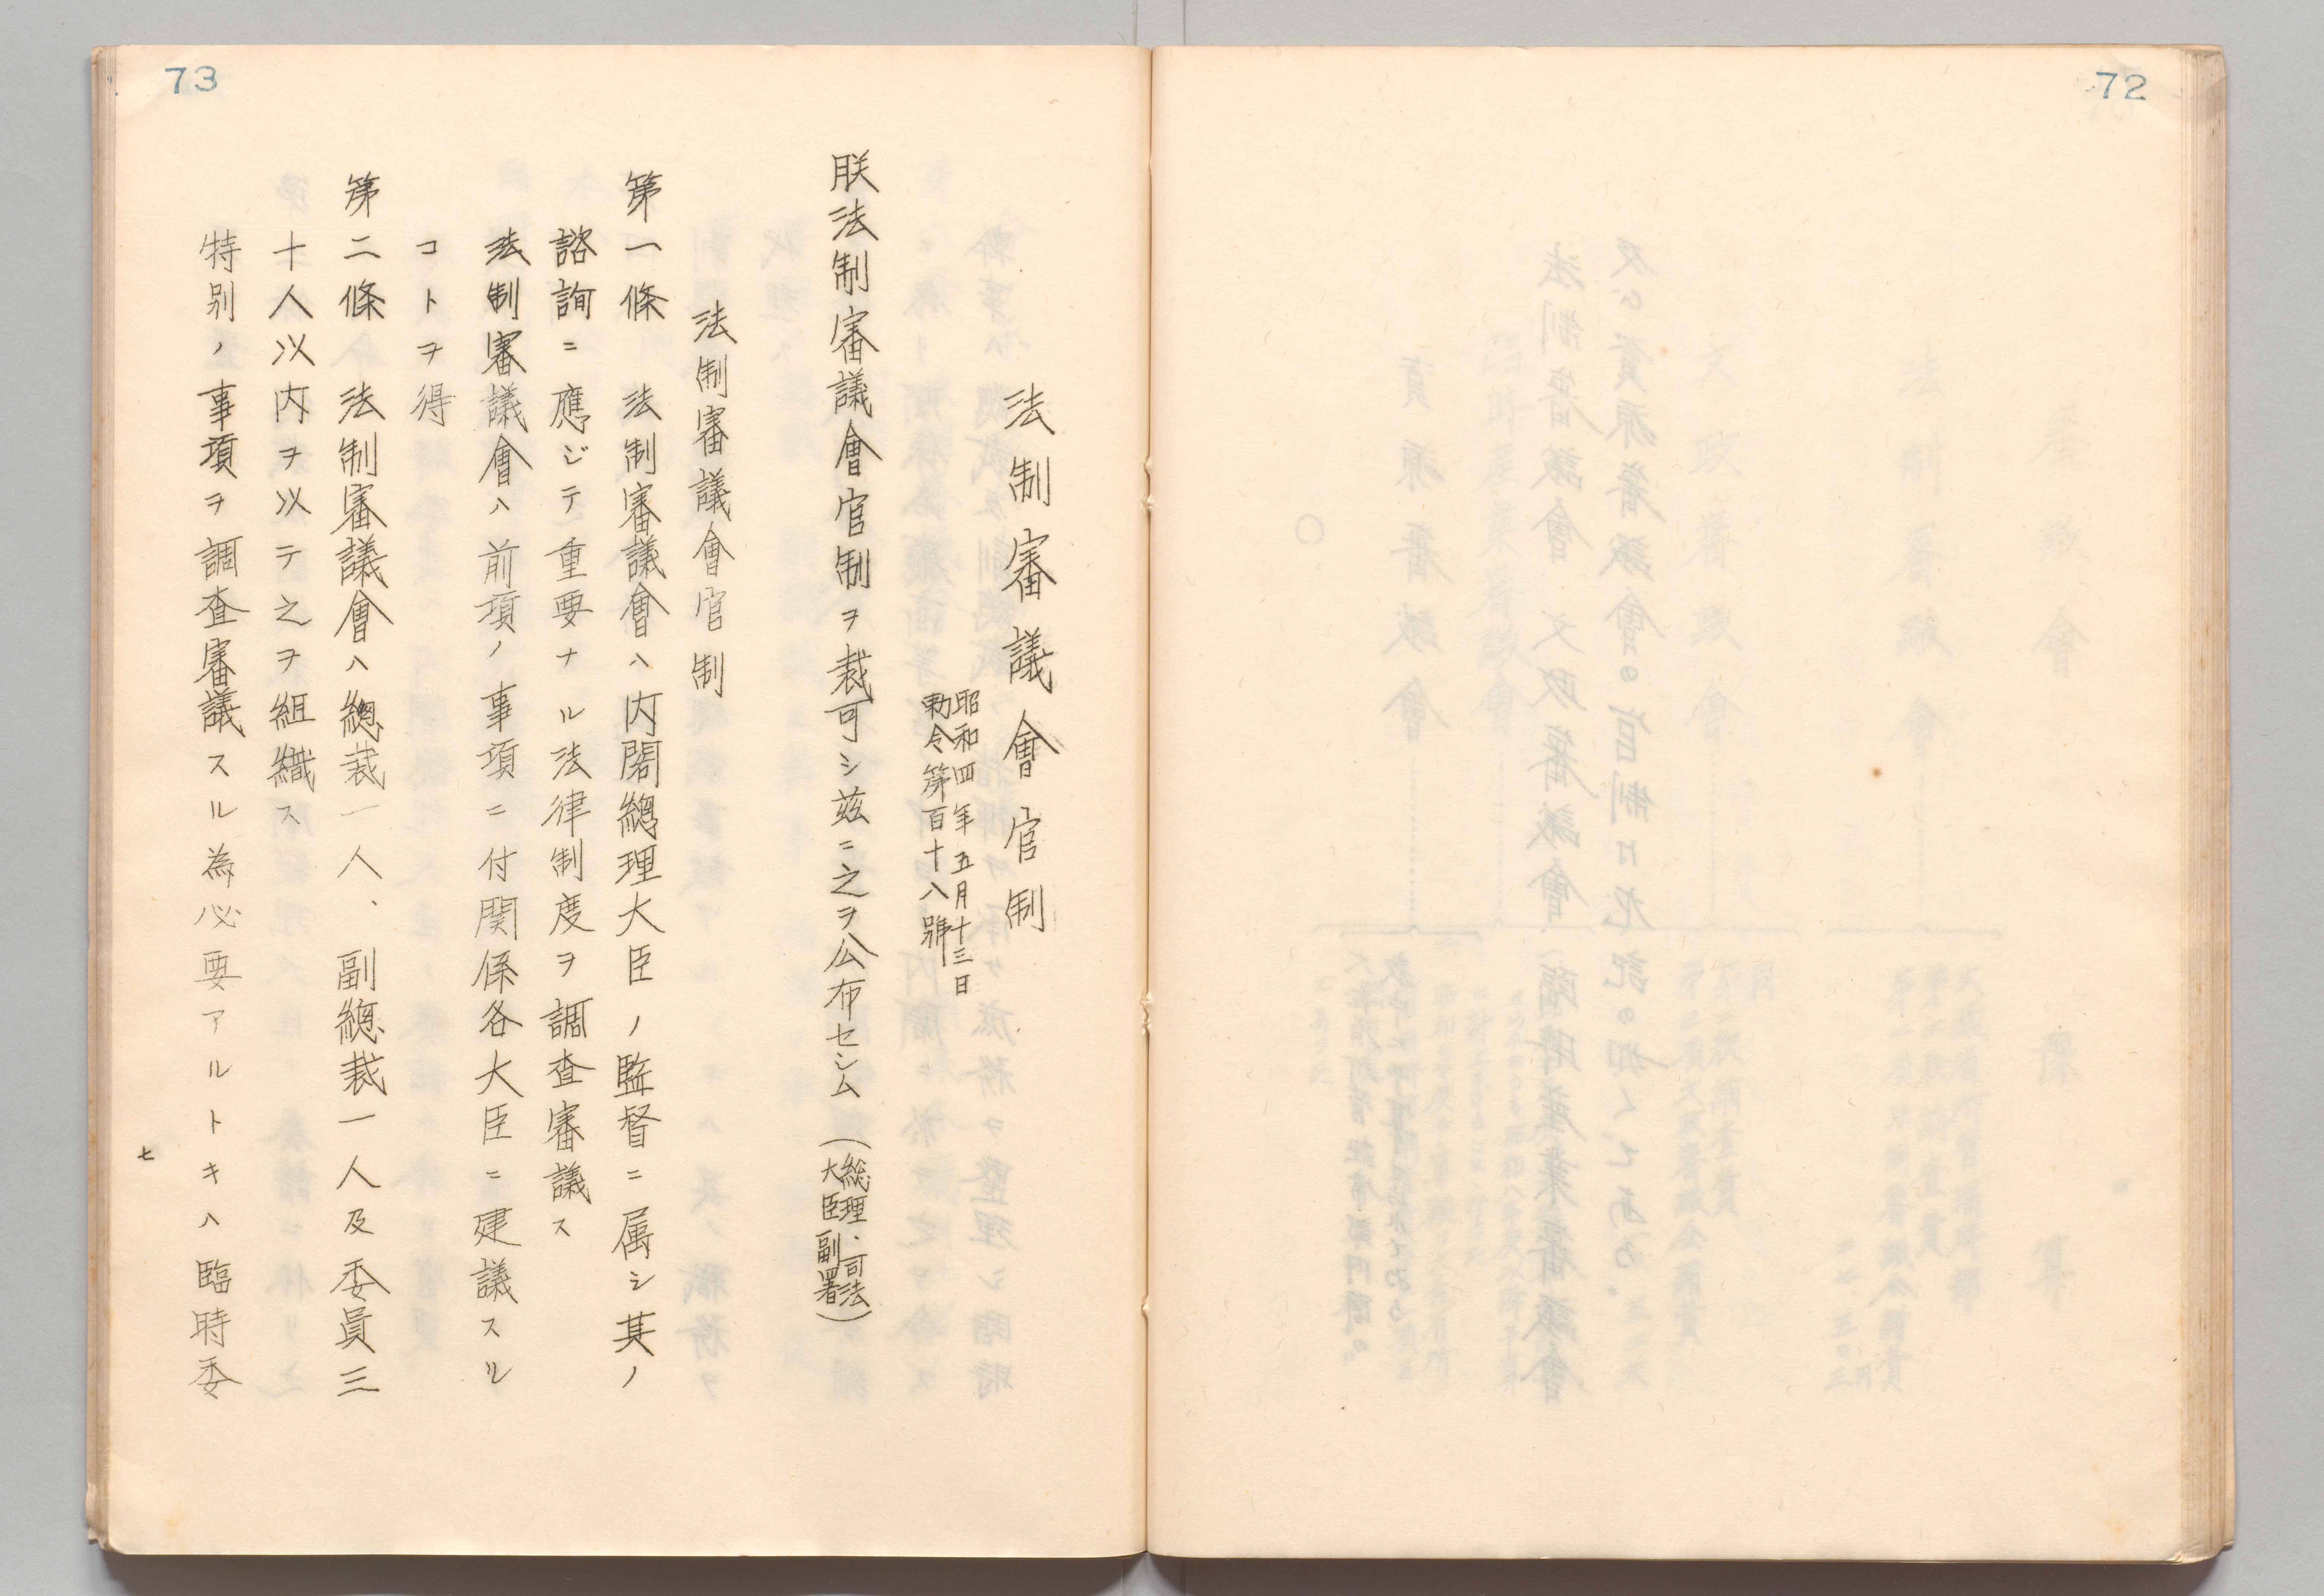 72
73
法制審議會官制
昭和四年五月十三日
勅令第百十八號
朕法制審議會官制ヲ裁可シ茲ニ之ヲ公布セシム(総理・司法
大臣副署)
法制審議會官制
第一條 法制審議會ハ内閣總理大臣ノ監督ニ属シ其ノ
諮詢ニ應ジテ重要ナル法律制度ヲ調査審議ス
法制審議會ハ前項ノ事項ニ付関係各大臣ニ建議スル
コトヲ得
第二條 法制審議會ハ總裁一人、副總裁一人及委員三
十人以内ヲ以テ之ヲ組織ス
特別ノ事項ヲ調査審議スル為必要アルトキハ臨時委
七